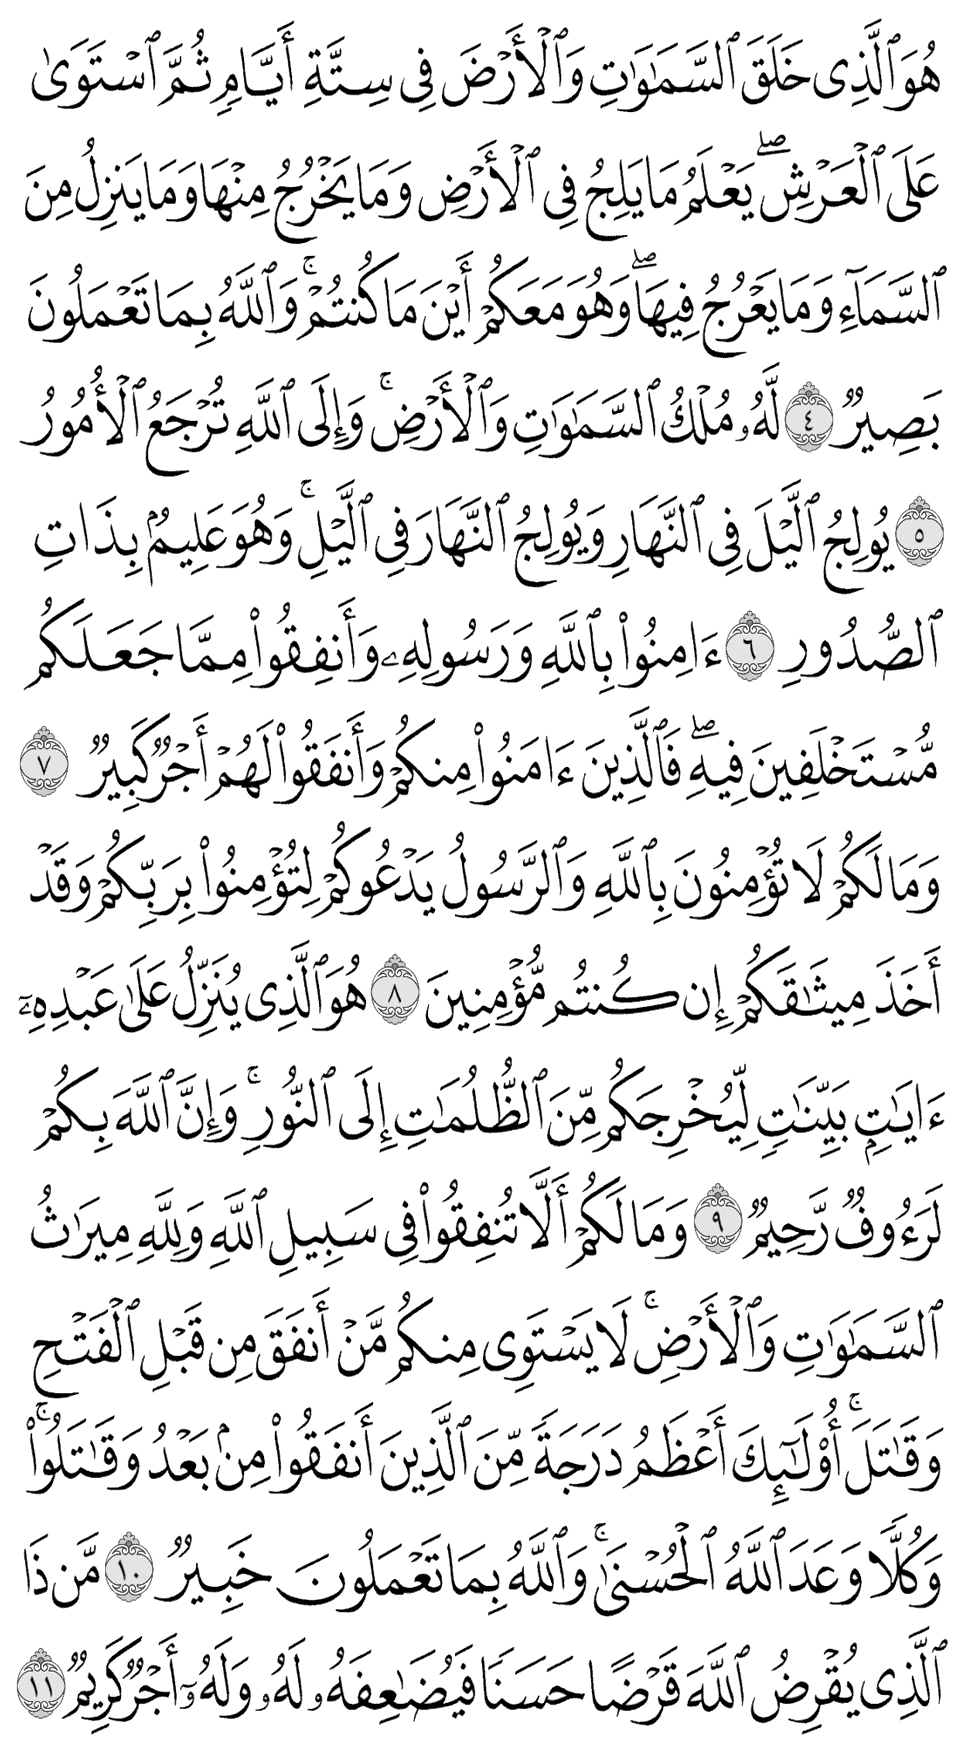 هُوَ ٱلَّذِى خَلَقَ ٱلسَّمَـٰوَٰتِ وَٱلْأَرْضَ فِى سِتَّةِ أَيَّامٍ ثُمَّ ٱسْتَوَىٰ
عَلَى ٱلْعَرْشِ ۖ يَعْلَمُ مَا يَلِجُ فِى ٱلْأَرْضِ وَمَا يَخْرُجُ مِنْهَا وَمَا يَنزِلُ مِنَ
ٱلسَّمَآءِ وَمَا يَعْرُجُ فِيهَا ۖ وَهُوَ مَعَكُمْ أَيْنَ مَا كُنتُمْ ۚ وَٱللَّهُ بِمَا تَعْمَلُونَ
بَصِيرٌ ٤ لَّهُۥ مُلْكُ ٱلسَّمَـٰوَٰتِ وَٱلْأَرْضِ ۚ وَإِلَى ٱللَّهِ تُرْجَعُ ٱلْأُمُورُ
٥ يُولِجُ ٱلَّيْلَ فِى ٱلنَّهَارِ وَيُولِجُ ٱلنَّهَارَ فِى ٱلَّيْلِ ۚ وَهُوَ عَلِيمٌۢ بِذَاتِ
ٱلصُّدُورِ ٦ ءَامِنُوا۟ بِٱللَّهِ وَرَسُولِهِۦ وَأَنفِقُوا۟ مِمَّا جَعَلَكُم
مُّسْتَخْلَفِينَ فِيهِ ۖ فَٱلَّذِينَ ءَامَنُوا۟ مِنكُمْ وَأَنفَقُوا۟ لَهُمْ أَجْرٌ كَبِيرٌ ٧
وَمَا لَكُمْ لَا تُؤْمِنُونَ بِٱللَّهِ وَٱلرَّسُولُ يَدْعُوكُمْ لِتُؤْمِنُوا۟ بِرَبِّكُمْ وَقَدْ
أَخَذَ مِيثَـٰقَكُمْ إِن كُنتُم مُّؤْمِنِينَ ٨ هُوَ ٱلَّذِى يُنَزِّلُ عَلَىٰ عَبْدِهِۦٓ
ءَايَـٰتٍۭ بَيِّنَـٰتٍ لِّيُخْرِجَكُم مِّنَ ٱلظُّلُمَـٰتِ إِلَى ٱلنُّورِ ۚ وَإِنَّ ٱللَّهَ بِكُمْ
لَرَءُوفٌ رَّحِيمٌ ٩ وَمَا لَكُمْ أَلَّا تُنفِقُوا۟ فِى سَبِيلِ ٱللَّهِ وَلِلَّهِ مِيرَٰثُ
ٱلسَّمَـٰوَٰتِ وَٱلْأَرْضِ ۚ لَا يَسْتَوِى مِنكُم مَّنْ أَنفَقَ مِن قَبْلِ ٱلْفَتْحِ
وَقَـٰتَلَ ۚ أُو۟لَـٰٓئِكَ أَعْظَمُ دَرَجَةً مِّنَ ٱلَّذِينَ أَنفَقُوا۟ مِنۢ بَعْدُ وَقَـٰتَلُوا۟ ۚ
وَكُلًّا وَعَدَ ٱللَّهُ ٱلْحُسْنَىٰ ۚ وَٱللَّهُ بِمَا تَعْمَلُونَ خَبِيرٌ ١٠ مَّن ذَا
ٱلَّذِى يُقْرِضُ ٱللَّهَ قَرْضًا حَسَنًا فَيُضَـٰعِفَهُۥ لَهُۥ وَلَهُۥٓ أَجْرٌ كَرِيمٌ ١١